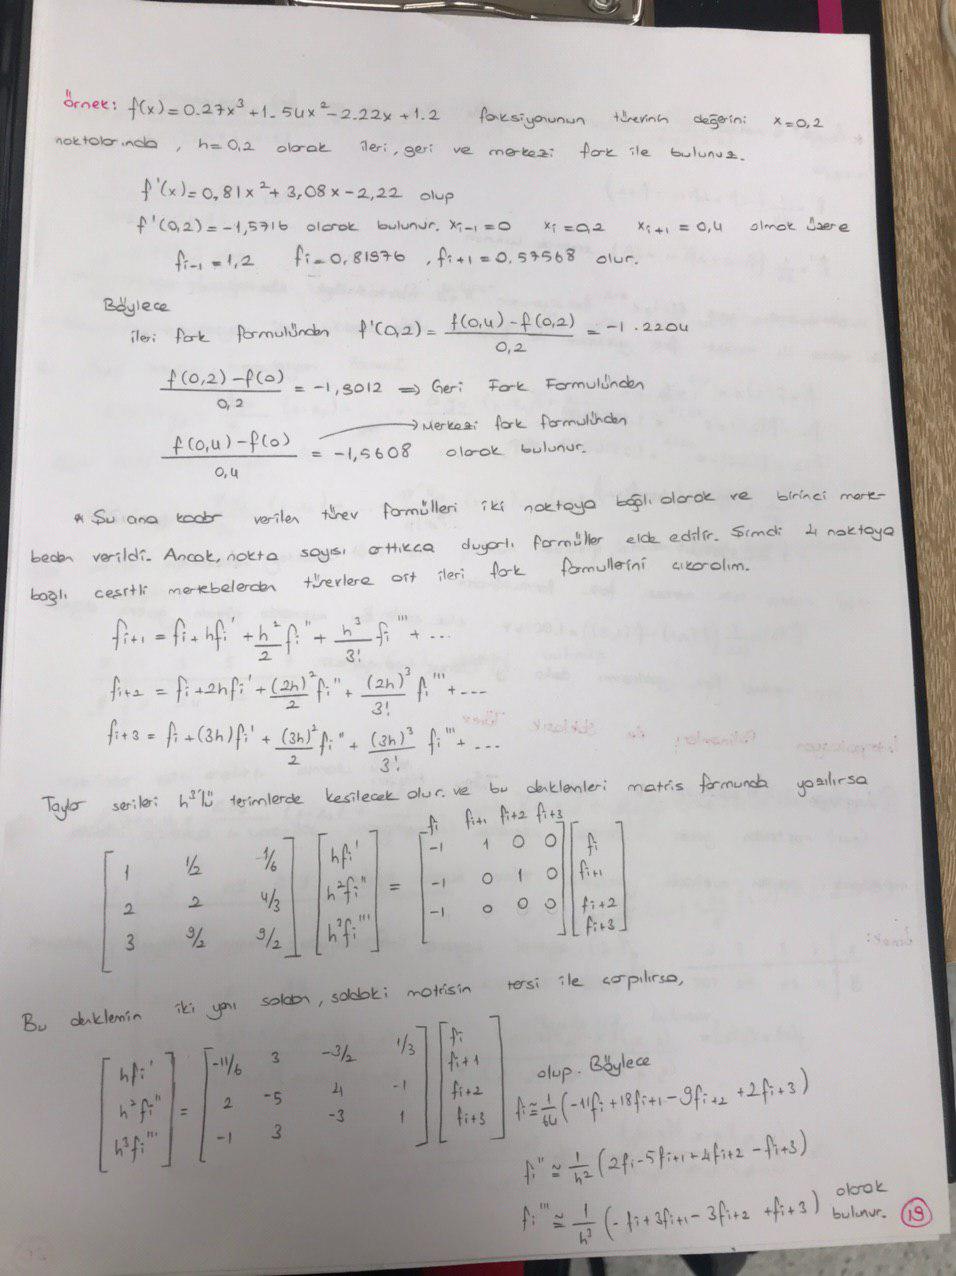 örnek: f(x)=0.27x³+1.54x²-2.22x+1.2 foksiyonunun türevinin değerini x=0,2
noktalarında, h=0,2 olarak ileri, geri ve merkezi fark ile bulunuz.
f'(x)=0,81x²+3,08x-2,22 olup
f'(0,2)=-1,5716 olarak bulunur. xi-1=0 xi=0,2 xi+1=0,4 olmak üzere
fi-1=1,2 fi=0,81976, fi+1=0,57568 olur.
Böylece
ileri fark formülünden f'(0,2)= (f(0,4)-f(0,2))/0,2 = -1.2204
(f(0,2)-f(0))/0,2 = -1,9012 => Geri Fark Formülünden
(f(0,4)-f(0))/0,4 = -1,5608 → Merkezi fark formülünden olarak bulunur.
* Şu ana kadar verilen türev formülleri iki noktaya bağlı olarak ve birinci merte-
beden verildi. Ancak, nokta sayısı arttıkca duyarlı formüller elde edilir. Şimdi 4 noktaya
bağlı cesitli mertebelerden türevlere ait ileri fark formullerini cıkaralım.
fi+1 = fi + hfi' + h²/2 fi'' + h³/3! fi''' + ...
fi+2 = fi + 2hfi' + (2h)²/2 fi'' + (2h)³/3! fi''' + ...
fi+3 = fi + (3h)fi' + (3h)²/2 fi'' + (3h)³/3! fi''' + ...
Taylor serileri h³'lü terimlerde kesilecek olur. ve bu denklemleri matris formunda yazılırsa
fi fi+1 fi+2 fi+3
[1 1/2 1/6] [hfi'] = [-1 1 0 0] [fi]
[2 2 4/3] [h²fi''] [-1 0 1 0] [fi+1]
[3 9/2 9/2] [h³fi'''] [-1 0 0 0] [fi+2]
[fi+3]
Bu denklemin iki yanı soldan, soldaki matrisin tersi ile carpılırsa,
[hfi'] = [-11/6 3 -3/2 1/3] [fi]
[h²fi''] [2 -5 4 -1] [fi+1]
[h³fi'''] [-1 3 -3 1] [fi+2]
[fi+3]
olup. Böylece
fi ≅ 1/6h (-11fi+18fi+1-9fi+2+2fi+3)
fi'' ≅ 1/h² (2fi-5fi+1+4fi+2-fi+3)
fi''' ≅ 1/h³ (-fi+3fi+1-3fi+2+fi+3) olarak bulunur.
19